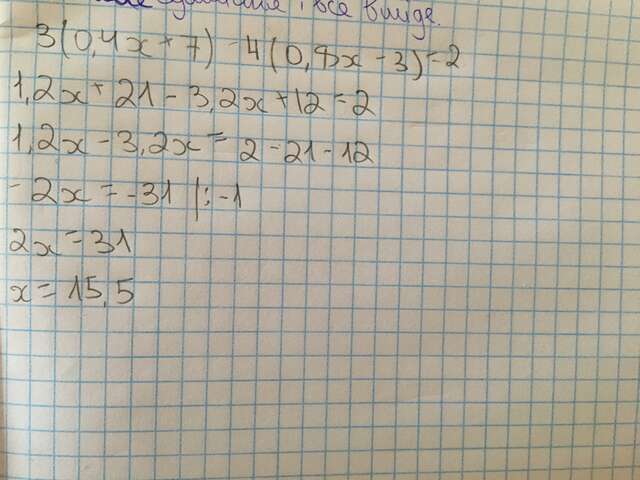 уравнения, все в виде.
3(0,4x + 7) - 4(0,8x - 3) = 2
1,2x + 21 - 3,2x + 12 = 2
1,2x - 3,2x = 2 - 21 - 12
- 2x = -31 |: -1
2x = 31
x = 15,5